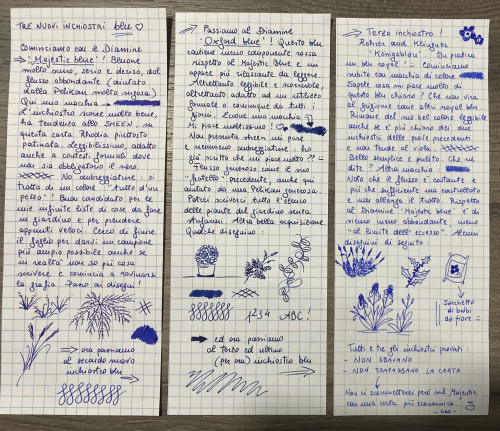 TRE NUOVI INCHIOSTRI blu ♡
Cominciamo con il Diamine
"Majestic blue"! Bluone
molto scuro, serio e deciso, dal
flusso abbondante (aiutato
dalla Pelikan molto mgosa).
Qui una macchia →
L'inchiostro scorre molto bene,
ha tendenza allo SHEEN, su
questa carta Rhodia piuttosto
patinata. Leggibilissimo, adatto
anche a contesti formali dove
mai sia obbligatorio il nero.
No ombreggiature: si
tratta di un colore "tutto d'un
pezzo". Buon candidato per le
mie infinite liste di cose da fare
in giardino e per prendere
appunti veloci. Cerco di finire
il foglio per darvi un campione
più ampio possibile anche se
in realtà non so più cosa
scrivere e comincia a rovinarsi
la grafia. Passo ai disegni!
ora passiamo
al secondo nuovo
inchiostro blu
Passiamo al Diamine
"Oxford blue"! Questo blu
contiene una componente rossa
rispetto al Majestic Blue e mi
appare più rilassante da leggere.
Altrettanto leggibile e scorrevole,
altrettanto adatto ad un utilizzo
formale o comunque da tutti i
giorni. Ecco una macchia →
Mi piace moltissimo! ♡
Non presenta sheen mi pare
e nemmeno ombreggiature: ho
già scritto che mi piace molto?? :)
Flusso generoso come il suo
"fratello" precedente, anche qui
aiutato da una Pelikan generosa.
Potrei scriverci tutto l'elenco
delle piante del giardino senza
stufarmi. Altra bella acquisizione.
Qualche disegnino:
1234 ABC!
ed ora passiamo
al terzo ed ultimo
(per ora) inchiostro blu
Terzo inchiostro!
Rohrer and Klingner
"Königsblau". In pratica
un blu royal! :) Cominciamo
subito con macchia di colore
Sapete cosa mi piace molto di
questo blu chiaro? Che non vira
al grigione come altri royal blu.
Rimane del suo bel colore leggibile
anche se è più chiaro dei due
inchiostri delle prove precedenti
e ma tende al viola.
Bello semplice e pulito. Che ne
dite? Altra macchia
Noto che il flusso è costante e
più che sufficiente ma controllato
e non allarga il tratto. Rispetto
al Diamine "Majestic blue" è di
sicuro meno abbondante, meno
"al limite dell'eccesso". Alcuni
disegnini di seguito:
Sacchetto
di bulbi
da fiore :)
Tutti e tre gli inchiostri provati:
- NON SBAVANO
- NON TRAPASSANO LA CARTA
Non ci scommetterei però sul Majestic
con una carta più economica.